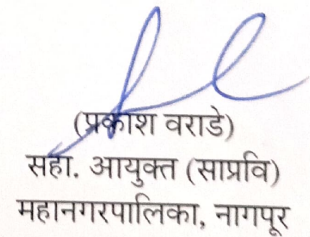 (प्रकाश वराडे)
सहा. आयुक्त (साप्रवि)
महानगरपालिका, नागपूर